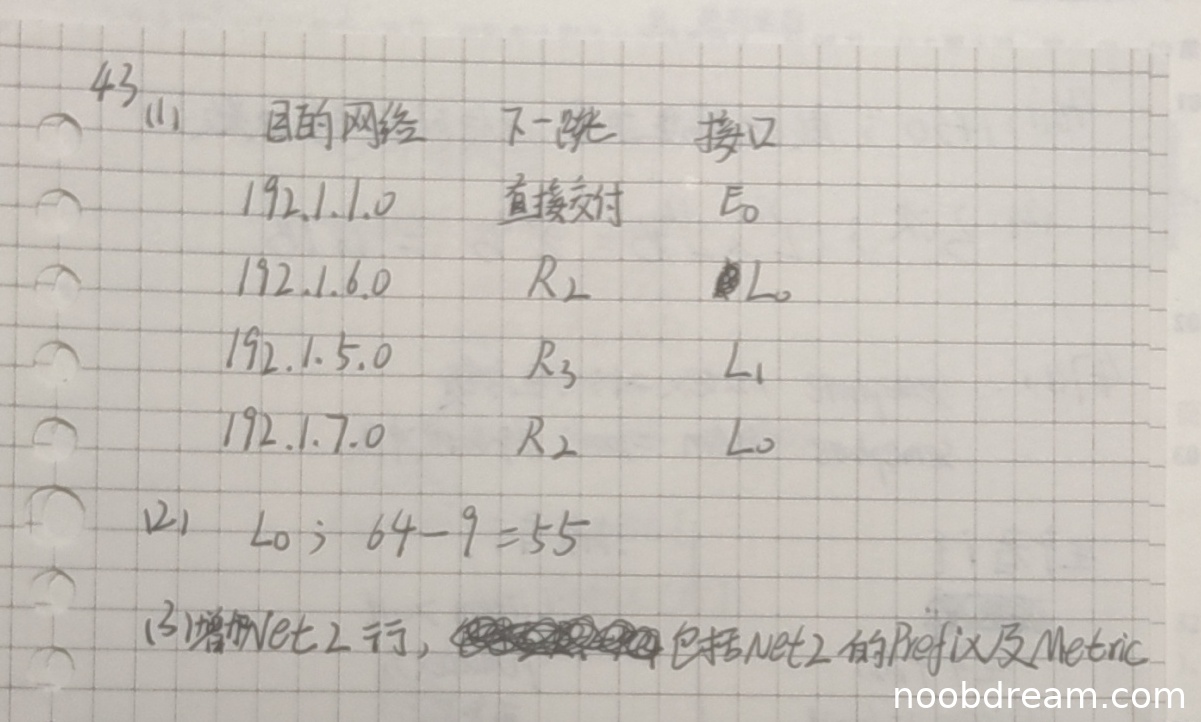 43 (1) 目的网络 下一跳 接口
192.1.1.0 直接交付 E₀
192.1.6.0 R₂ L₀
192.1.5.0 R₃ L₁
192.1.7.0 R₂ L₀
(2) L₀; 64-9=55
(3)增加Net2行, 包括Net2的Prefix及Metric
noobdream.com